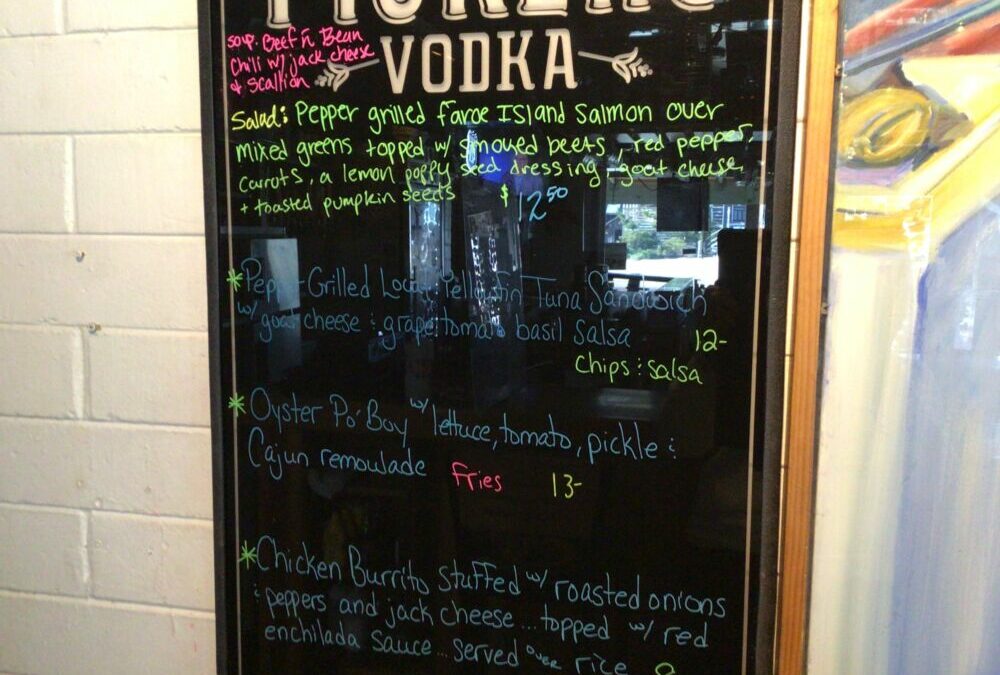 Soup: Beef n Bean
Chili w/ jack cheese
+ scallion
VODKA
Salad: Pepper grilled Faroe Island Salmon over
mixed greens topped w/ smoked beets, red pepper,
carrots, a lemon poppy seed dressing, goat cheese
+ toasted pumpkin seeds $12.50
*Pepper-Grilled Local Yellowfin Tuna Sandwich
w/ goat cheese & grape tomato basil Salsa 12-
Chips & salsa
*Oyster Po' Boy w/ lettuce, tomato, pickle &
Cajun remoulade Fries 13-
*Chicken Burrito stuffed w/ roasted onions
& peppers and jack cheese... topped w/ red
enchilada sauce... served over rice